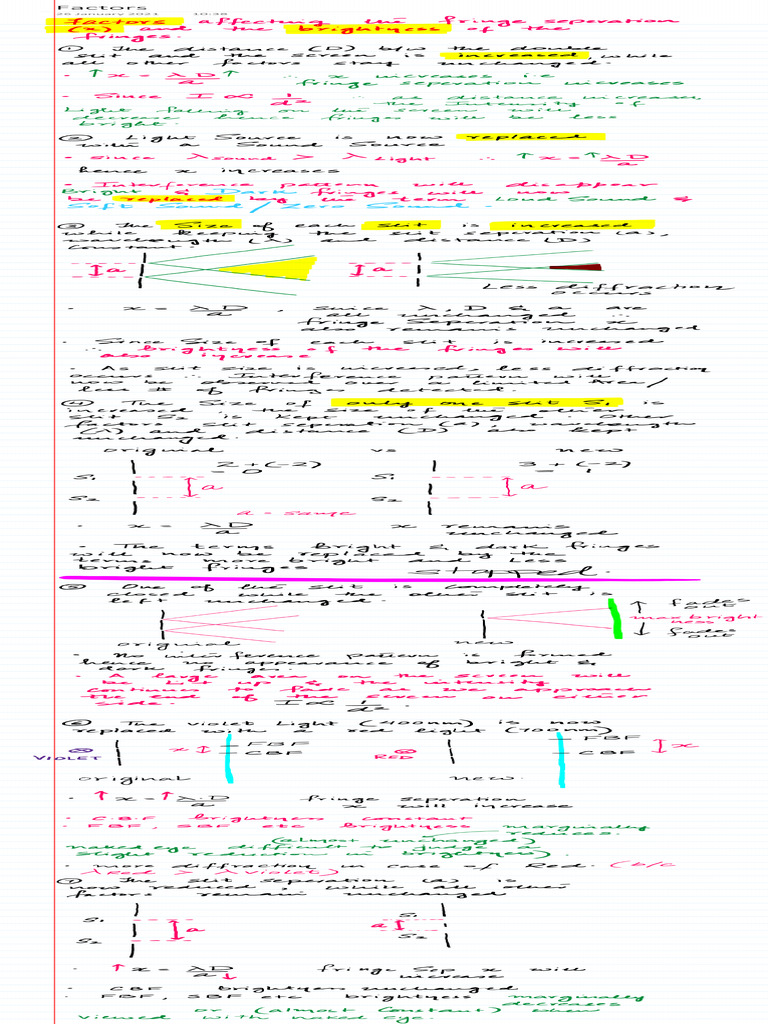 Factors
26 January 2021 10:38
Factors affecting the fringe seperation
(x) and the brightness of the
fringes.
① The distance (D) b/w the double
slit and the screen is increased, while
all other factors stay unchanged.
· ↑ x = λD↑/a ∴ x increases i.e
fringe seperation increases
· Since I ∝ 1/d² ∴ as distance increases,
the Intensity of
light falling on the screen will
decrease hence fringes will be less
bright.
② Light Source is now replaced
with a Sound Source
· Since λ sound > λ Light ∴ ↑x = ↑λD/a
hence x increases
· Interference pattern will disappear
Bright & Dark fringes will now
be replaced by the term Loud Sound &
Soft Sound / Zero Sound.
③ The Size of each slit is increased
while keeping the slit separation (a),
wavelength (λ) and distance (D)
constant.
a a
Less diffraction
occurs
· x = λD/a , since λ, D & a are
all unchanged ∴
fringe Seperation x
also remains unchanged
· Since Size of each slit is increased
∴ brightness of the fringes will
also increase
· As slit size is increased, less diffraction
occurs ∴ Interference pattern will
now be observed over a limited Area/
less # of fringes detected.
④ The Size of only one slit S₁ is
increased & the size of the other
slit S₂ is kept unchanged. Other
factors slit separation (a), wavelength
(λ) and distance (D) also kept
unchanged.
original vs new
2+(-2) 3+(-2)
0 1
S₁ S₁
a a
S₂ S₂
a = same
· x = λD/a x remains
unchanged
· The terms bright & dark fringes
will now be replaced by the
terms more bright and Less
bright fringes
Stopped.
⑤ One of the slit is completely
closed while the other slit is
left unchanged.
fades
out
max bright
ness
fades
out
original new
· No interference pattern is formed
hence no appearance of bright &
dark fringes.
· A large area on the screen will
be lit up & the intensity
continues to fade as we approach
the end of the screen on either
side. I ∝ 1/d².
⑥ The violet Light (400nm) is now
replaced with a red light (700nm)
VIOLET x FBF CBF RED FBF CBF x
original new.
· ↑ x = ↑λD/a fringe seperation
x will increase
· C.B.F brightness constant
· FBF, SBF etc brightness marginally
reduces.
(almost unchanged)
naked eye difficult to judge a
slight reduction in brightness).
· more diffraction in case of Red. (b/c
λ Red > λ violet)
⑦ The slit seperation (a) is
now reduced, while all other
factors remain unchanged
S₁ S₁
a a
S₂ S₂
· ↑ x = λD/a↓ fringe Sep x will
increase
· CBF brightness unchanged
· FBF, SBF etc brightness marginally
decreases
or (almost Constant) when
viewed with naked eye.